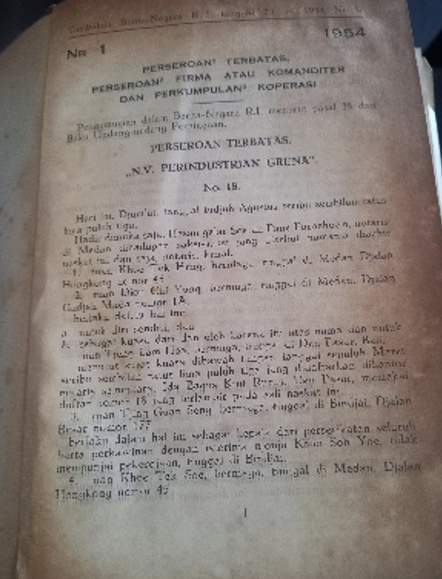 Tambahan Berita-Negara R.I. tanggal 1954 No.
Nr 1 1954
PERSEROAN² TERBATAS,
PERSEROAN² FIRMA ATAU KOMANDITER
DAN PERKUMPULAN² KOPERASI
Pengumuman dalam Berita-Negara R.I. menurut pasal 38 dari
Kitab Undang-undang Perniagaan.
PERSEROAN TERBATAS.
„N.V. PERINDUSTRIAN GRENA".
No. 18.
Hari ini, Djum'at, tanggal tudjuh Agustus seribu sembilan ratus
lima puluh tiga.
Hadir dimuka saja, Hasan gelar Soetan Pane Paroehoem, notaris
di Medan dihadapan saksi-saksi jang disebut
naskah ini dan saja, notaris, kenal.
1. tuan Khoe Tek Heng, berniaga, tinggal di Medan Djalan
Hongkong nomor 45
2. tuan Yong, berniaga, tinggal di Medan, Djalan
Gadjah Mada nomor 1A.
berlaku dalam hal ini:
a untuk diri sendiri, dan
b. sebagai kuasa dari dan oleh karena itu atas nama dan untuk
tuan Tjong berniaga, tinggal di Den Pasar, Bali,
menurut surat kuasa dibawah tangan tanggal sepuluh Maret
seribu sembilan ratus lima puluh tiga jang
notaris sementara, Ida Bagus Den Pasar,
daftar nomor 18 jang pada asli naskah ini.
3. tuan Tjong berniaga, tinggal di Bindjai, Djalan
Besar nomor 177
berlaku dalam hal ini sebagai kepala dari persekutuan seluruh
harta perkawinan dengan isterinja njonja Khoe tidak
mempunjai pekerdjaan, tinggal di Bindjai.
4. tuan Khoe Tek berniaga, tinggal di Medan, Djalan
Hongkong nomor 45
1